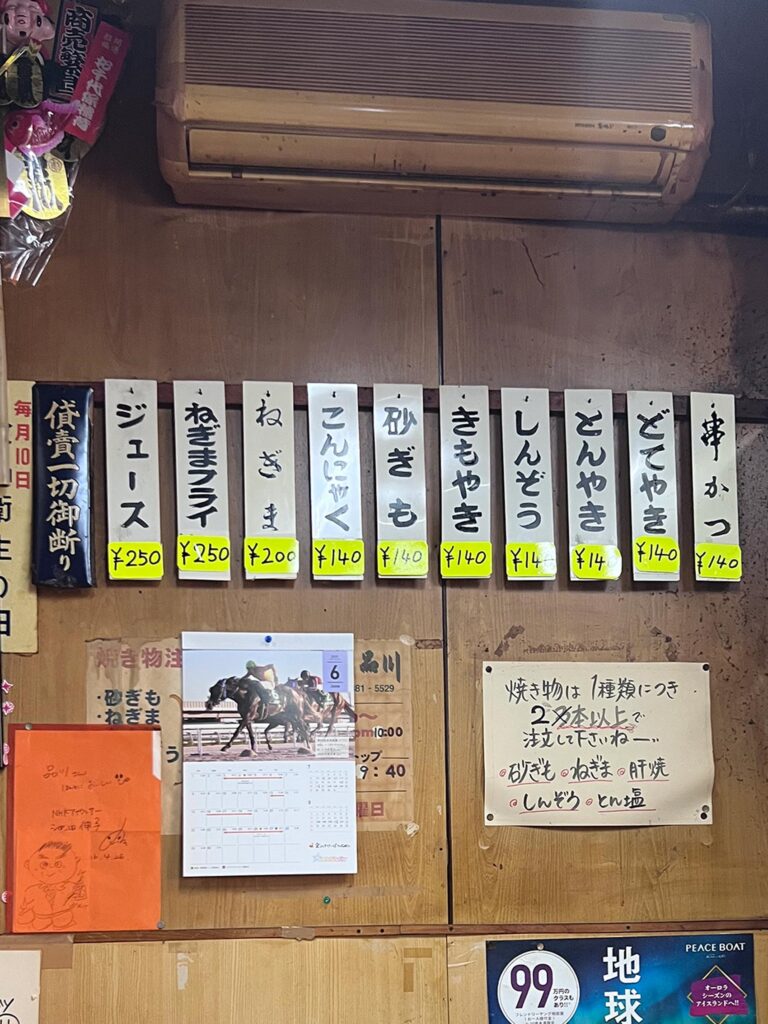 商売繁盛
毎月10日
衛生の日
貸賣一切御断り
ジュース
¥250
ねぎまフライ
¥250
ねぎま
¥200
こんにゃく
¥140
砂ぎも
¥140
きもやき
¥140
しんぞう
¥14
とんやき
¥140
どてやき
¥140
串かつ
¥140
焼き物注
品川
・砂ぎも
・ねぎま
81-5529
pm10:00
ップ
9:40
曜日
6
焼き物は1種類につき
2本以上で
注文して下さいねー…
砂ぎも ねぎま 肝焼
しんぞう とん塩
品川さん
NHKアナウンサー
4.26
PEACE BOAT
99
万円の
クラスも
あり!!
地球
オーロラ
シーズンの
アイスランドへ!!